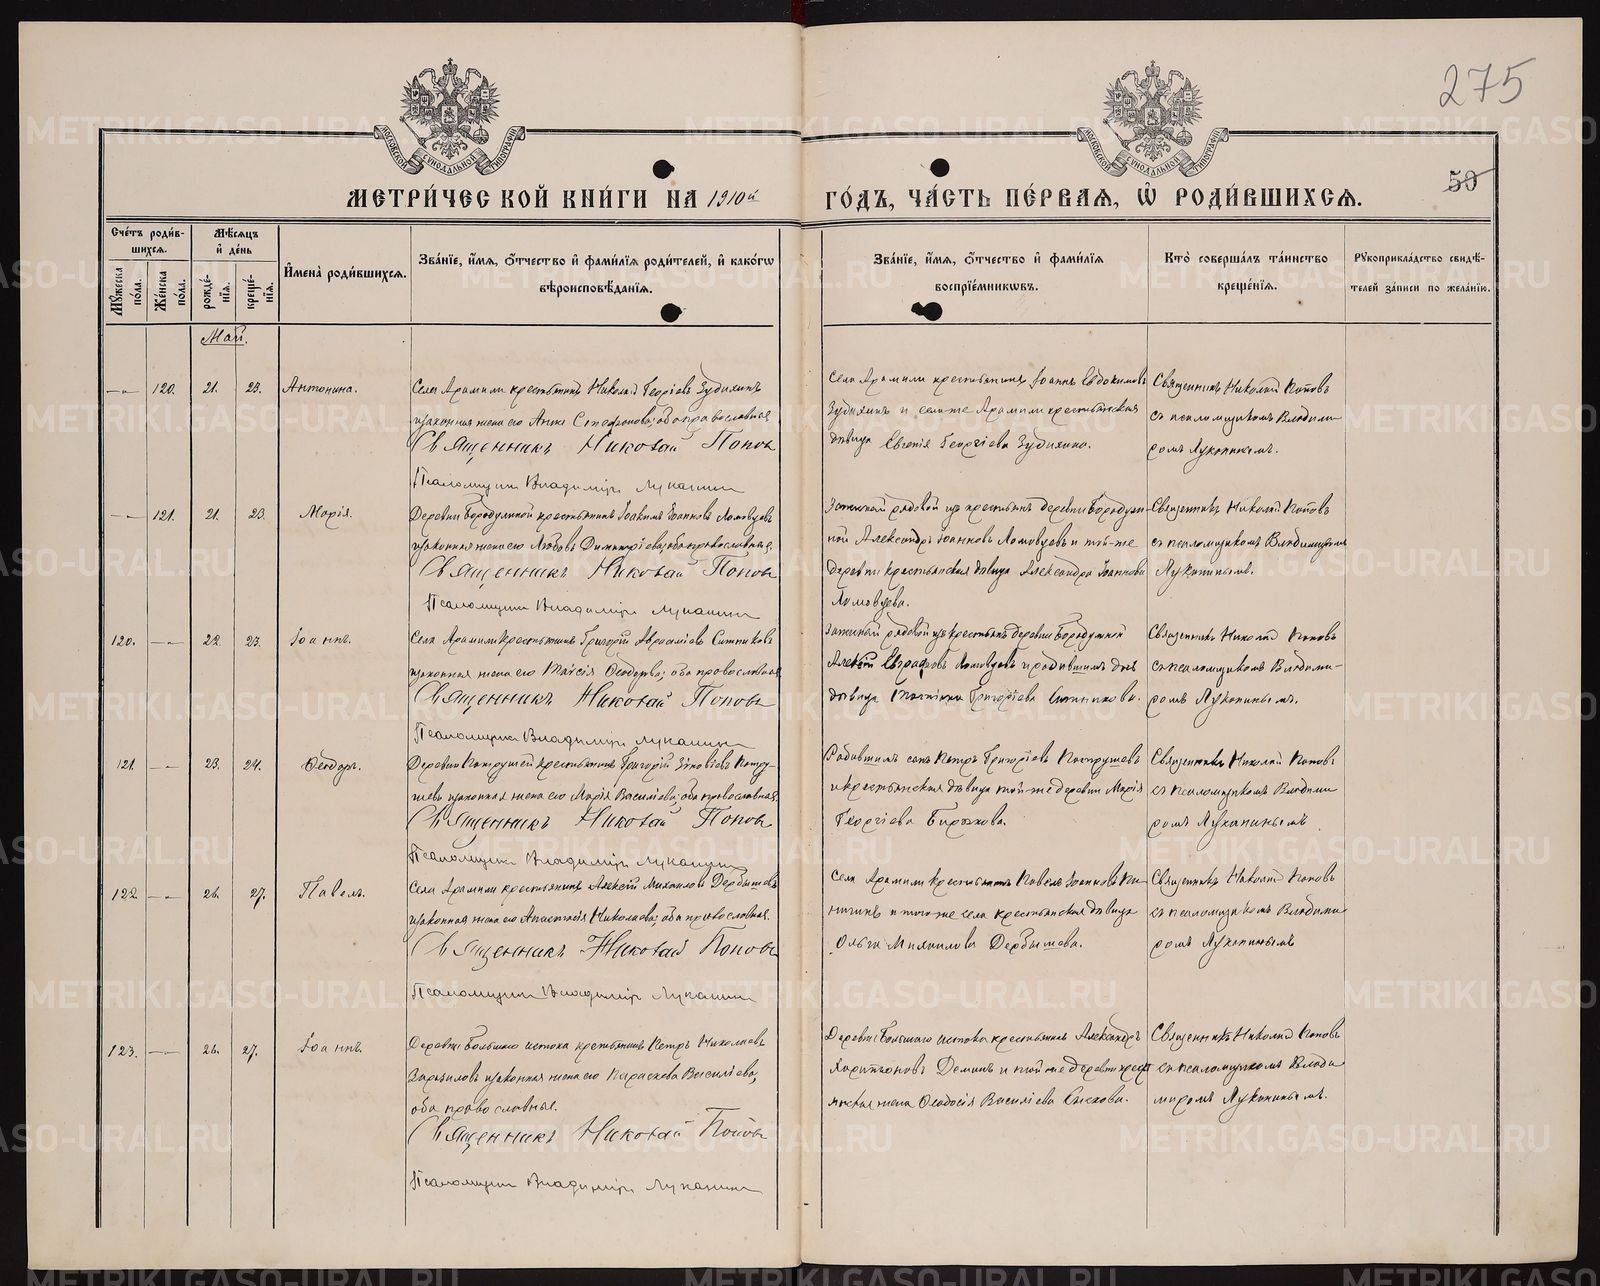 275
50
МОСКОВСКОЙ СѴНОДАЛЬНОЙ ТИПОГРАФІИ
МОСКОВСКОЙ СѴНОДАЛЬНОЙ ТИПОГРАФІИ
МЕТРИ́ЧЕСКОЙ КНИ́ГИ НА 1910й ГО́ДЪ, ЧА́СТЬ ПЕ́РВАѦ, Ѡ҆ РОДИ́ВШИХСѦ.
Сче́тъ роди́в-
шихсѧ.
Мꙋ́жеска
по́ла.
Же́нска
по́ла.
Мѣ́сѧцъ
и҆ де́нь
рожде́-
нїѧ.
креще́-
нїѧ.
И҆мена̀ роди́вшихсѧ.
Зва́нїе, и҆́мѧ, ѻ҆́тчество и҆ фами́лїѧ роди́телей, и҆ како́гѡ
вѣроисповѣ́данїѧ.
Зва́нїе, и҆́мѧ, ѻ҆́тчество и҆ фами́лїѧ
воспрїе́мникѡвъ.
Кто̀ соверша́лъ та́инство
креще́нїѧ.
Рꙋкоприкла́дство свидѣ́-
телей за́писи по жела́нїю.
Май.
120. 21. 23. Антонина.
Села Арамили крестьянинъ Николай Георгіевъ Зудихинъ
и законная жена его Анна Стефанова; оба православные
Священникъ Николай Поповъ
Псаломщикъ Владиміръ Луканинъ
Села Арамили крестьянинъ Іоаннъ Евдокимовъ
Зудихинъ и села-же Арамили крестьянская
дѣвица Евгенія Георгіева Зудихина.
Священникъ Николай Поповъ
съ псаломщикомъ Владими-
ромъ Луканинымъ.
121. 21. 23. Марія.
Деревни Бородулиной крестьянинъ Іоакимъ Іоанновъ Ломовцевъ
и законная жена его Любовь Димитріева; оба православные.
Священникъ Николай Поповъ
Псаломщикъ Владиміръ Луканинъ
Запасный рядовой изъ крестьянъ деревни Бородули-
ной Александръ Іоанновъ Ломовцевъ и той-же
деревни крестьянская дѣвица Александра Іоаннова
Ломовцева.
Священникъ Николай Поповъ
съ псаломщикомъ Владиміромъ
Луканинымъ.
120. 22. 23. Іоаннъ.
Села Арамили крестьянинъ Григорій Ситниковъ
и законная жена его Таисія Ѳеодорова; оба православные
Священникъ Николай Поповъ
Псаломщикъ Владиміръ Луканинъ
Запасный рядовой изъ крестьянъ деревни Бородулиной
Алексѣй Евграфовъ Ломовцевъ и родившимъ дочь
дѣвица Григоріева Ситникова.
Священникъ Николай Поповъ
съ псаломщикомъ Владими-
ромъ Луканинымъ.
121. 23. 24. Ѳеодоръ.
Деревни Патрушей крестьянинъ Григорій Зиновіевъ Патру-
шевъ и законная жена его Марія Василіева; оба православные.
Священникъ Николай Поповъ
Псаломщикъ Владиміръ Луканинъ
Родившимъ сынъ Петръ Григоріевъ Патрушевъ
и крестьянская дѣвица той-же деревни Марія
Георгіева Бирюкова.
Священникъ Николай Поповъ
съ псаломщикомъ Владими
ромъ Луканинымъ
122. 26. 27. Павелъ.
Села Арамили крестьянинъ Алексѣй Михаиловъ Дербышевъ
и законная жена его Анастасія Николаева; оба православные.
Священникъ Николай Поповъ
Псаломщикъ Владиміръ Луканинъ
Села Арамили крестьянинъ Павелъ Іоанновъ
и того-же села крестьянская дѣвица
Ольга Михаилова Дербышева.
Священникъ Николай Поповъ
съ псаломщикомъ Владими
ромъ Луканинымъ
123. 26. 27. Іоаннъ.
Деревни Большаго истока крестьянинъ Петръ Николаевъ
и законная жена его Параскева Василіева;
оба православные.
Священникъ Николай Поповъ
Псаломщикъ Владиміръ Луканинъ
Деревни Большаго истока крестьянинъ Александръ
Харитоновъ Деминъ и той-же деревни крест
янская жена Ѳеодосія Василіева
Священникъ Николай Поповъ
съ псаломщикомъ Влади
миромъ Луканинымъ.
METRIKI.GASO-URAL.RU